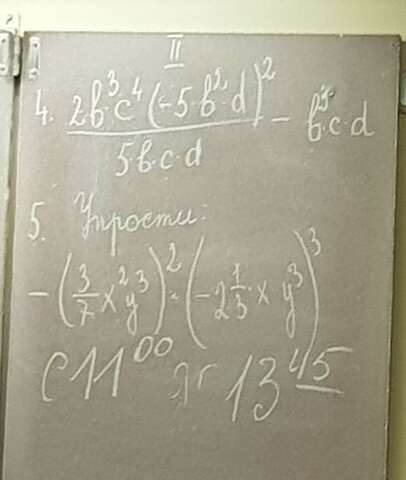 II
4. \frac{2b^3 \cdot c^4 (-5 \cdot b^2 \cdot d)^2}{5 \cdot b \cdot c \cdot d} - b^3 \cdot c \cdot d
5. Упрости:
-(\frac{3}{7} x^2 y^3)^2 \cdot (-2\frac{1}{3} \cdot x y^3)^3
с 11^{00} 13^{45}